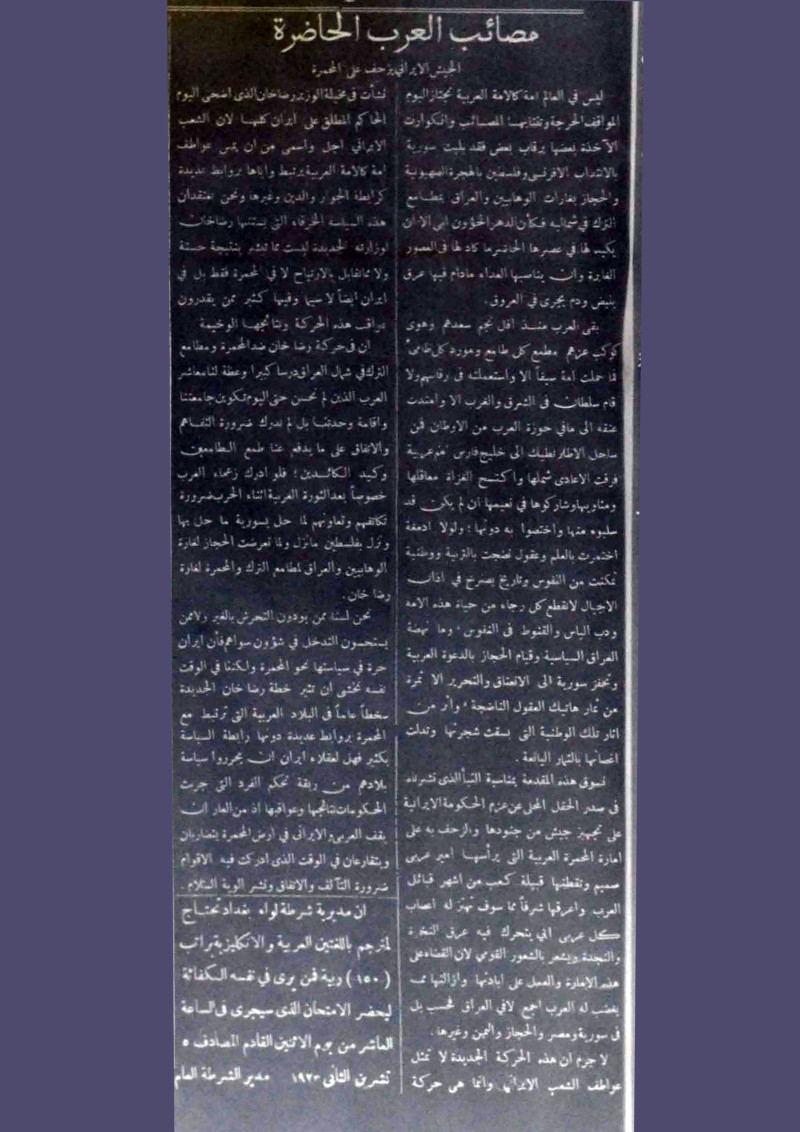 مصائب العرب الحاضرة
الجيش الايراني يزحف على المحمرة
ليس في العالم امة كالامة العربية تجتاز اليوم
المواقف الحرجة وتنتابها المصائب والكوارث
الآخذة بعضها برقاب بعض فقد بليت سورية
بالانتداب الافرنسي وفلسطين بالهجرة الصهيونية
والحجاز بغارات الوهابيين والعراق بمطامع
الترك في شماليه فكأن الدهر الخؤون ابى الا ان
يكيد لها في عصرها الحاضر ما كاد لها في العصور
الغابرة وان يناصبها العداء مادام فيها عرق
ينبض ودم يجرى في العروق.
بقى العرب منذ افل نجم سعدهم وهوى
كوكب عزهم مطمع كل طامع ومورد كل ظامئ
فما حملت امة سيفاً الا واستعملته فى رقابهم ولا
قام سلطان فى الشرق والغرب الا وامتدت
عنقه الى مافي حوزة العرب من الاوطان فمن
ساحل الاطلانطيك الى خليج فارس امم عربية
فرقت الاعادى شملها واكتسح الغزاة معاقلها
وشاركوها في نعيمها ان لم يكن قد
سلبوه منها واختصوا به دونها ؛ ولولا ادمغة
اختمرت بالعلم وعقول نضجت بالتربية ووطنية
تمكنت من النفوس وتاريخ يصرخ في اذان
الاجيال لانقطع كل رجاء من حياة هذه الامة
ودب الياس والقنوط فى النفوس ؛ وما نهضة
العراق السياسية وقيام الحجاز بالدعوة العربية
وتحفز سورية الى الانعتاق والتحرير الا ثمرة
من ثمار هاتيك العقول الناضجة ؛ واثر من
اثار تلك الوطنية التى بسقت شجرتها وتدلت
اغصانها بالثمار اليانعة.
نسوق هذه المقدمة بمناسبة النبأ الذى نشرناه
فى صدر الحقل المحلى عن عزم الحكومة الايرانية
على تجهيز جيش من جنودها والزحف به على
امارة المحمرة العربية التى يرأسها امير عربى
صميم وتقطنها قبيلة كعب من اشهر قبائل
العرب واعرقها شرفاً مما سوف تهتز له اعصاب
كل عربى ابي يتحرك فيه عرق النخوة
والنجدة ويشعر بالشعور القومي لان القضاء على
هذه الامارة والعمل على ابادتها وازالتها مما
يغضب له العرب اجمع لافي العراق فحسب بل
فى سورية ومصر والحجاز واليمن وغيرها.
لا جرم ان هذه الحركة الجديدة لا تمثل
عواطف الشعب الايراني وانما هى حركة
نشأت فى مخيلة الوزير رضا خان الذى اضحى اليوم
الحاكم المطلق على ايران كلها لان الشعب
الايراني اجل واسمى من ان يمس عواطف
امة كالامة العربية يرتبط واياها بروابط عديدة
كرابطة الجوار والدين وغيرها ونحن نعتقد ان
هذه السياسة الخرقاء التى يستنها رضا خان
لوزارته الجديدة ليست مما تبشر بنتيجة حسنة
ولا مما تقابل بالارتياح لا في المحمرة فقط بل فى
ايران ايضاً لا سيما وفيها كثير ممن يقدرون
عواقب هذه الحركة ونتائجها الوخيمة
ان فى حركة رضا خان ضد المحمرة ومطامع
الترك في شمال العراق درسا كبيرا وعظة لنا معاشر
العرب الذين لم نحسن حتى اليوم تكوين جامعتنا
واقامة وحدتنا بل لم ندرك ضرورة التفاهم
والاتفاق على ما يدفع عنا طمع الطامعين
وكيد الكائدين ؛ فلو ادرك زعماء العرب
خصوصاً بعد الثورة العربية اثناء الحرب ضرورة
تكاتفهم وتعاونهم لما حل بسورية ما حل بها
ونزل بفلسطين مانزل ولما تعرضت الحجاز لغارة
الوهابيين والعراق لمطامع الترك والمحمرة لغارة
رضا خان.
نحن لسنا ممن يودون التحرش بالغير ولا ممن
يستحسون التدخل في شؤون سواهم فأن ايران
حرة في سياستها نحو المحمرة ولكننا في الوقت
نفسه نخشى ان تثير خطة رضا خان الجديدة
سخطاً عاماً فى البلاد العربية التى ترتبط مع
المحمرة بروابط عديدة دونها رابطة السياسة
بكثير فهل لعقلاء ايران ان يحرروا سياسة
بلادهم من ربقة تحكم الفرد التى جربت
الحكومات نتائجها وعواقبها اذ من العار ان
يقف العربى والايرانى في ارض المحمرة يتضاربان
ويتقارعان في الوقت الذى ادركت فيه الاقوام
ضرورة التآلف والاتفاق ونشر الوية السلام.
ان مديرية شرطة لواء بغداد تحتاج
لمترجم باللغتين العربية والانكليزية براتب
(١٥٠) ربية فمن يرى في نفسه الكفائة
ليحضر الامتحان الذى سيجرى فى الساعة
العاشر من يوم الاثنين القادم المصادف ٥
تشرين الثانى ١٩٢٣ مدير الشرطة العام